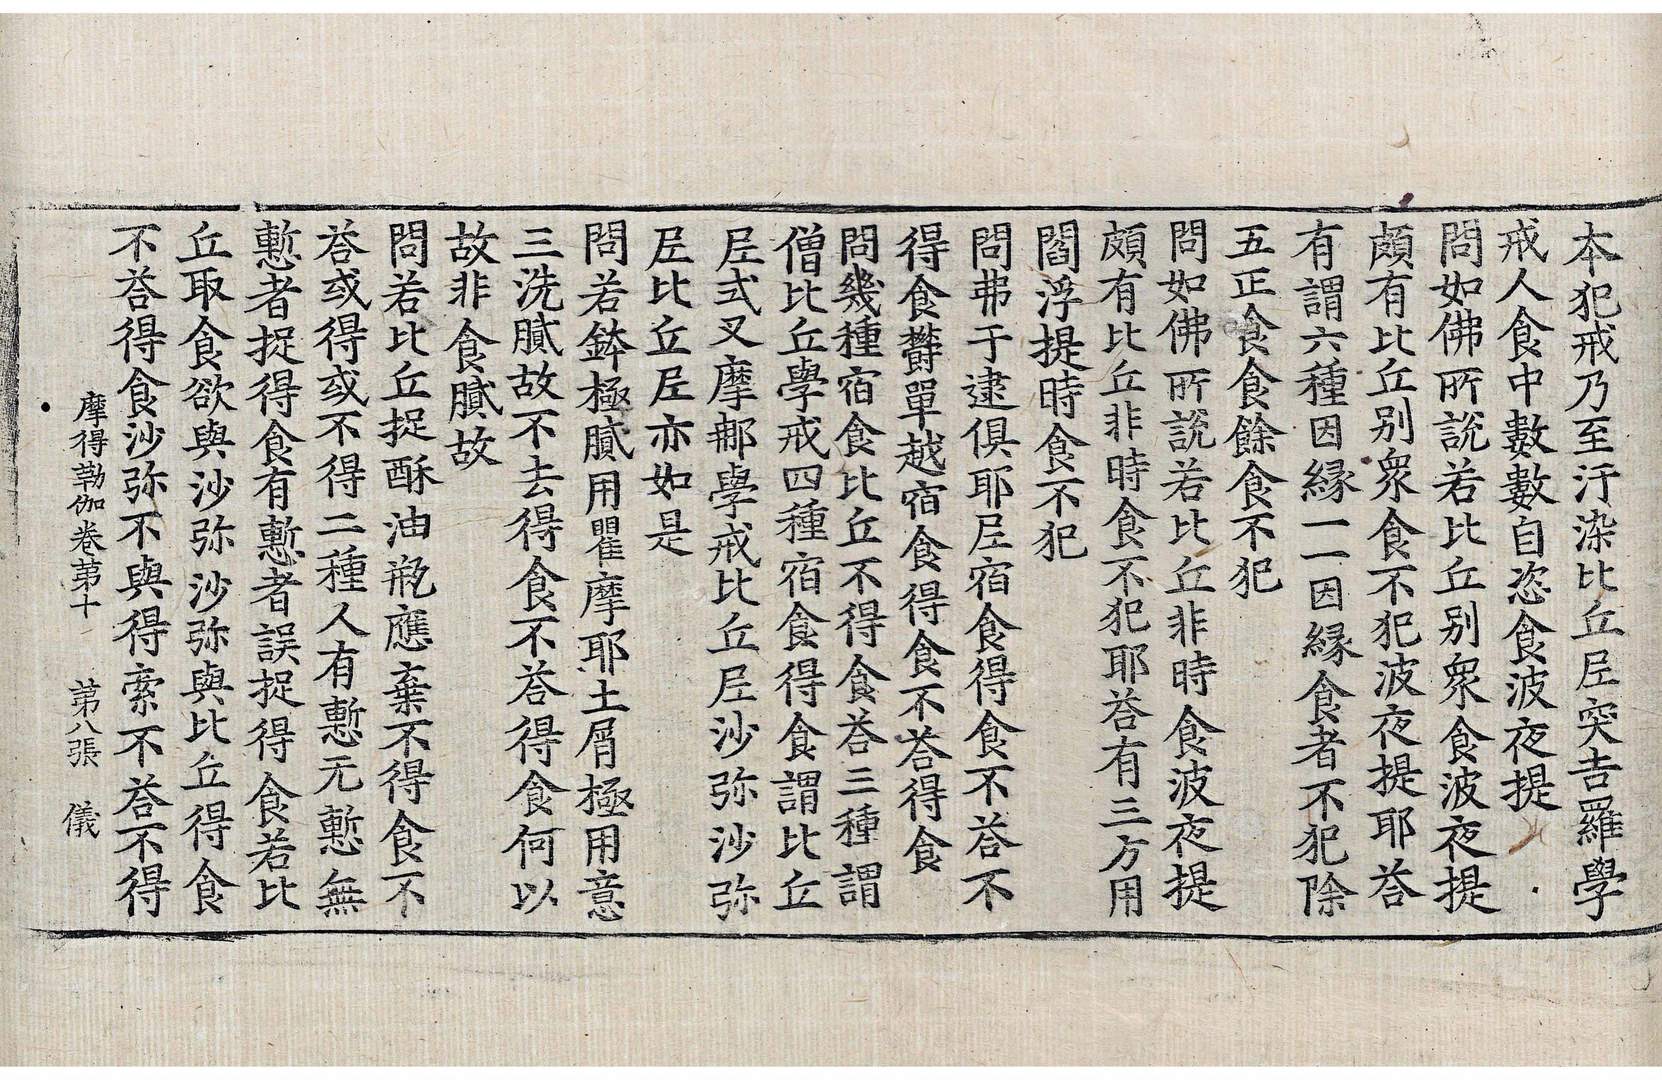 本犯戒乃至汙染比丘尼突吉羅學
戒人食中數數自恣食波夜提
問如佛所說若比丘別衆食波夜提
頗有比丘別衆食不犯波夜提耶荅
有謂六種因緣一一因緣食者不犯除
五正食食餘食不犯
問如佛所說若比丘非時食波夜提
頗有比丘非時食不犯耶荅有三方用
閻浮提時食不犯
問弗于逮俱耶尼宿食得食不荅不
得食欝單越宿食得食不荅得食
問幾種宿食比丘不得食荅三種謂
僧比丘學戒四種宿食得食謂比丘
尼式叉摩那學戒比丘尼沙弥沙弥
尼比丘尼亦如是
問若鉢極膩用瞿摩耶土屑極用意
三洗膩故不去得食不荅得食何以
故非食膩故
問若比丘捉酥油瓶應棄不得食不
荅或得或不得二種人有慙无慙無
慙者捉得食有慙者誤捉得食若比
丘取食欲與沙弥沙弥與比丘得食
不荅得食沙弥不與得索不荅不得
摩得勒伽卷第十　第八張　儀